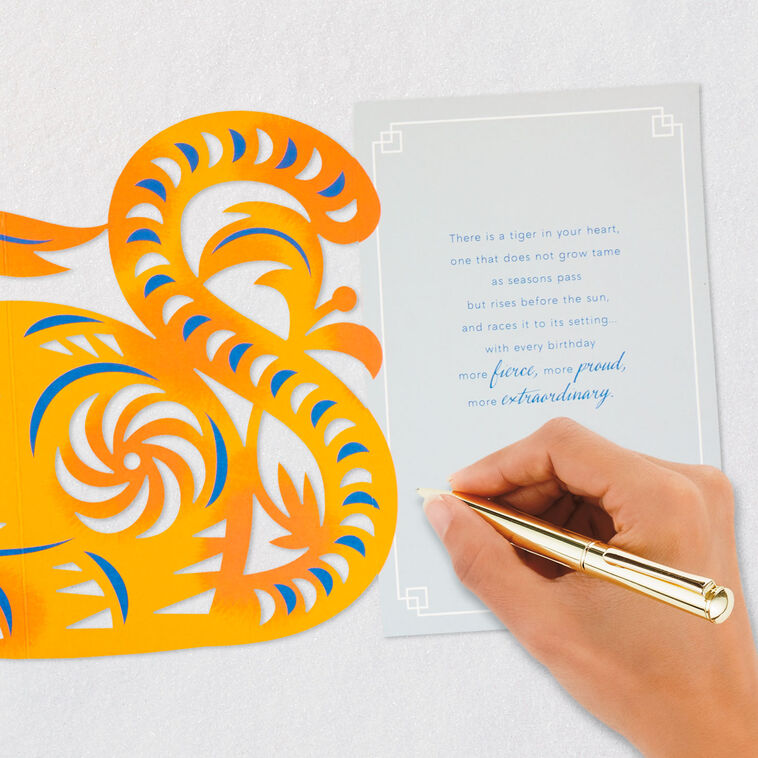 There is a tiger in your heart,
one that does not grow tame
as seasons pass
but rises before the sun,
and races it to its setting...
with every birthday
more fierce, more proud,
more extraordinary.